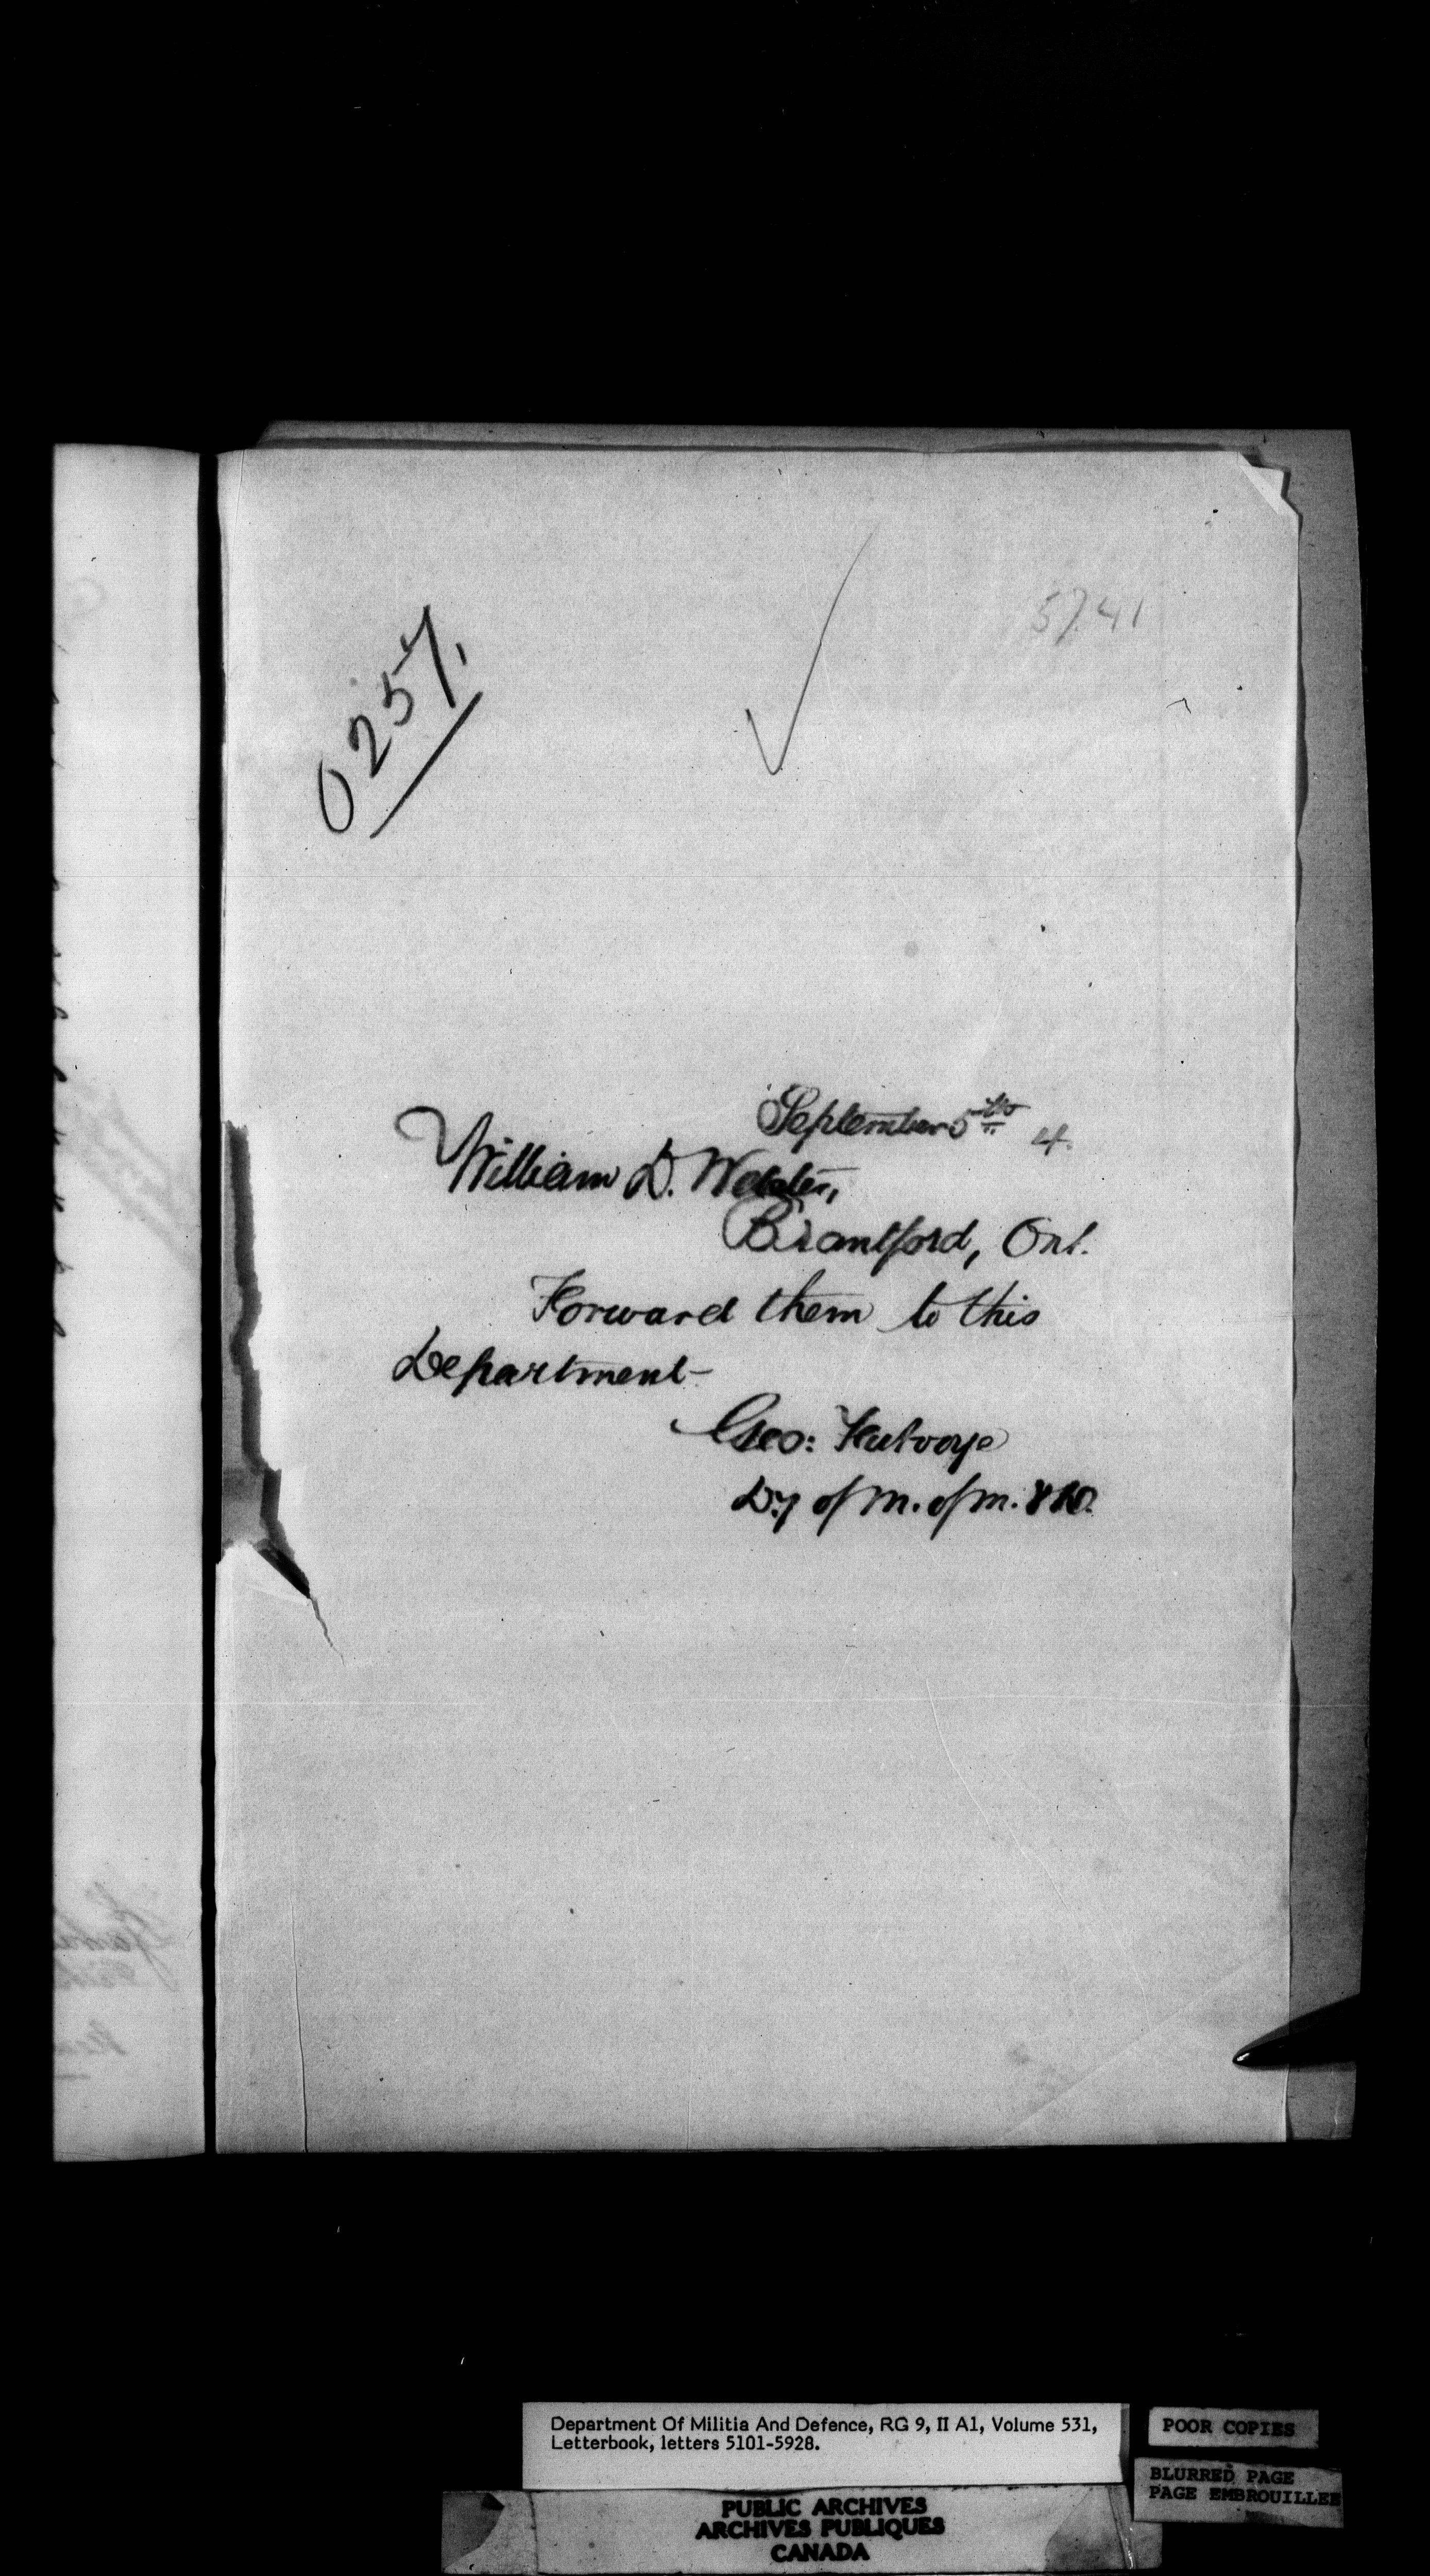 0257.
5741
September 5th 4.
William D. Webster,
Brantford, Ont.
Forward them to this
Department
Geo: Futvoye
Dy of M. of M. & D.
Department Of Militia And Defence, RG 9, II A1, Volume 531,
Letterbook, letters 5101-5928.
POOR COPIES
BLURRED PAGE
PAGE EMBROUILLEE
PUBLIC ARCHIVES
ARCHIVES PUBLIQUES
CANADA